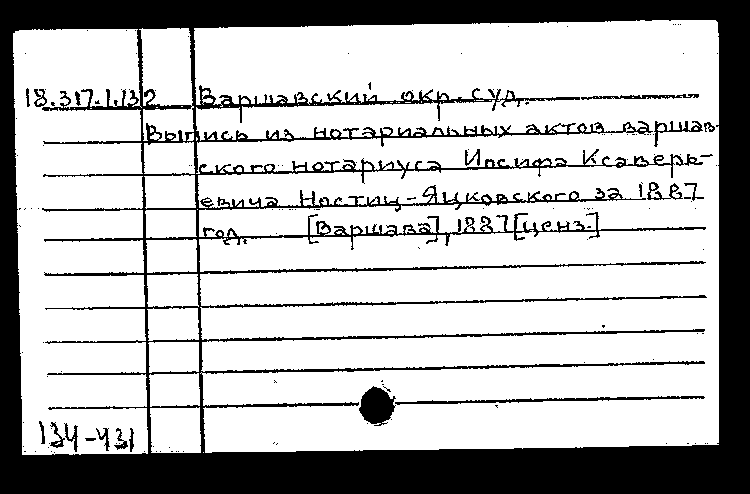 18.317.1.132 Варшавский окр. суд.
Выпись из нотариальных актов варшав-
ского нотариуса Иосифа Ксаверь-
евича Ностиц-Яцковского за 1887
год. [Варшава], 1887 [ценз.]
134-431